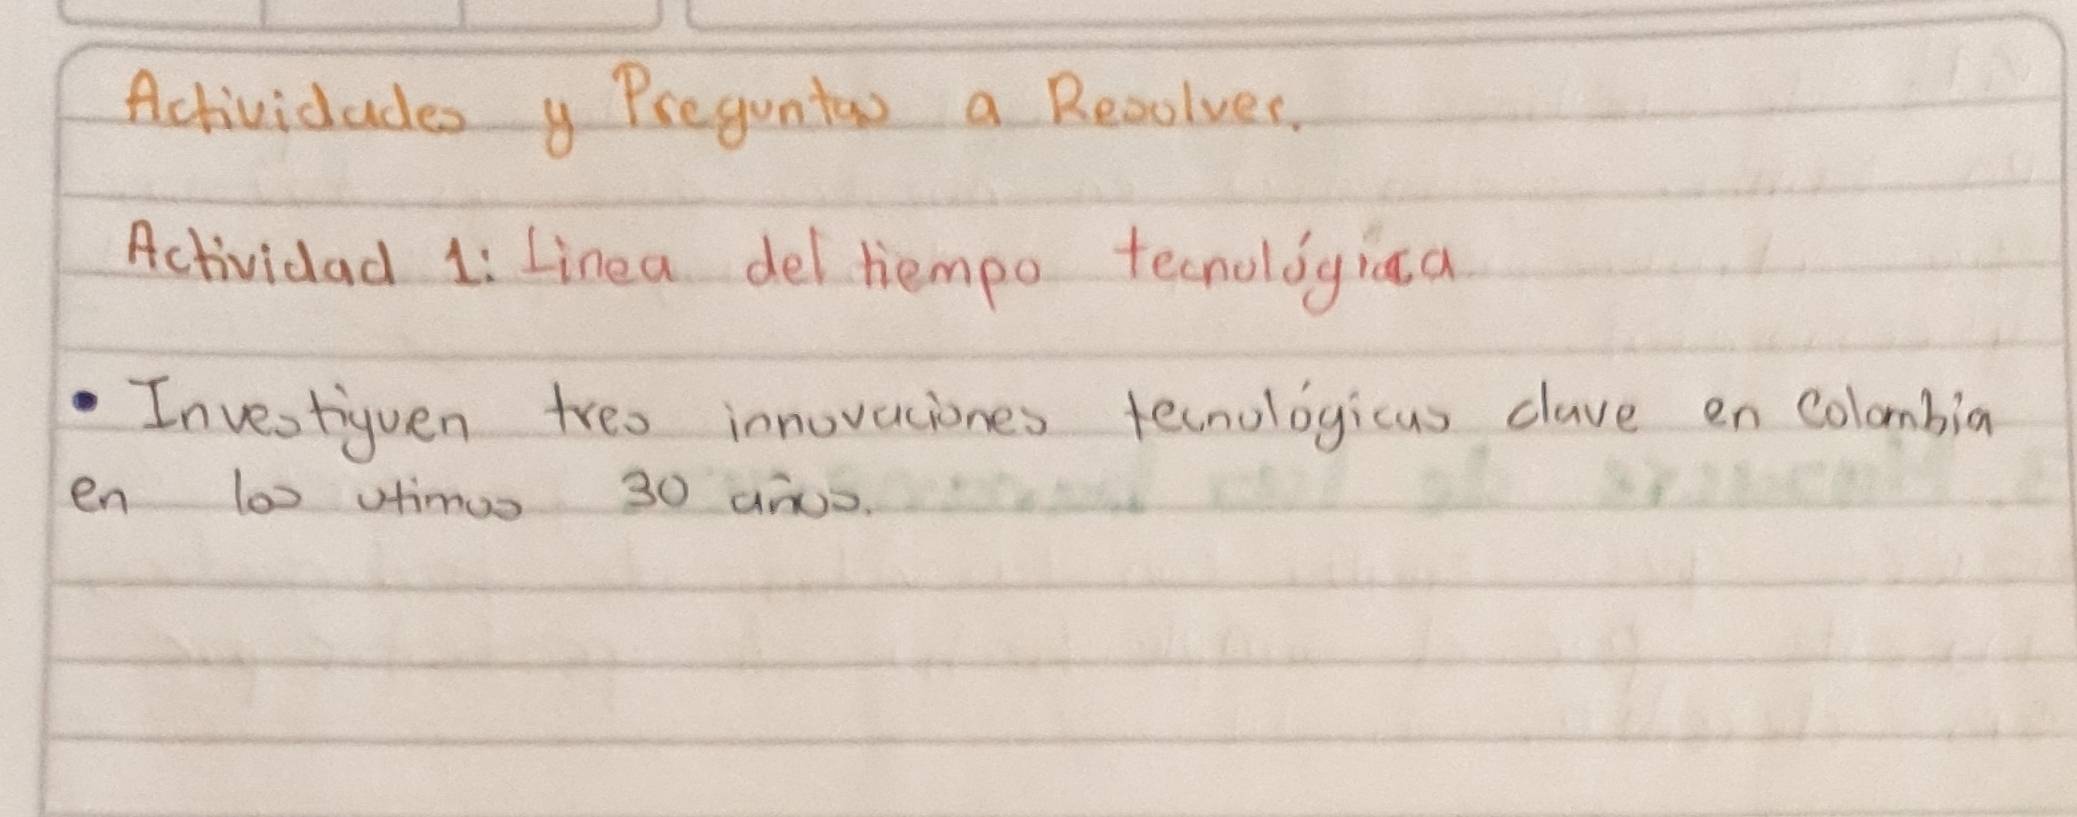 Actividades y Preguntas a Resolver.
Actividad 1: Linea del tiempo tecnológica
• Investiguen tres innovaciones tecnológicas clave en Colombia
en los utimos 30 años.